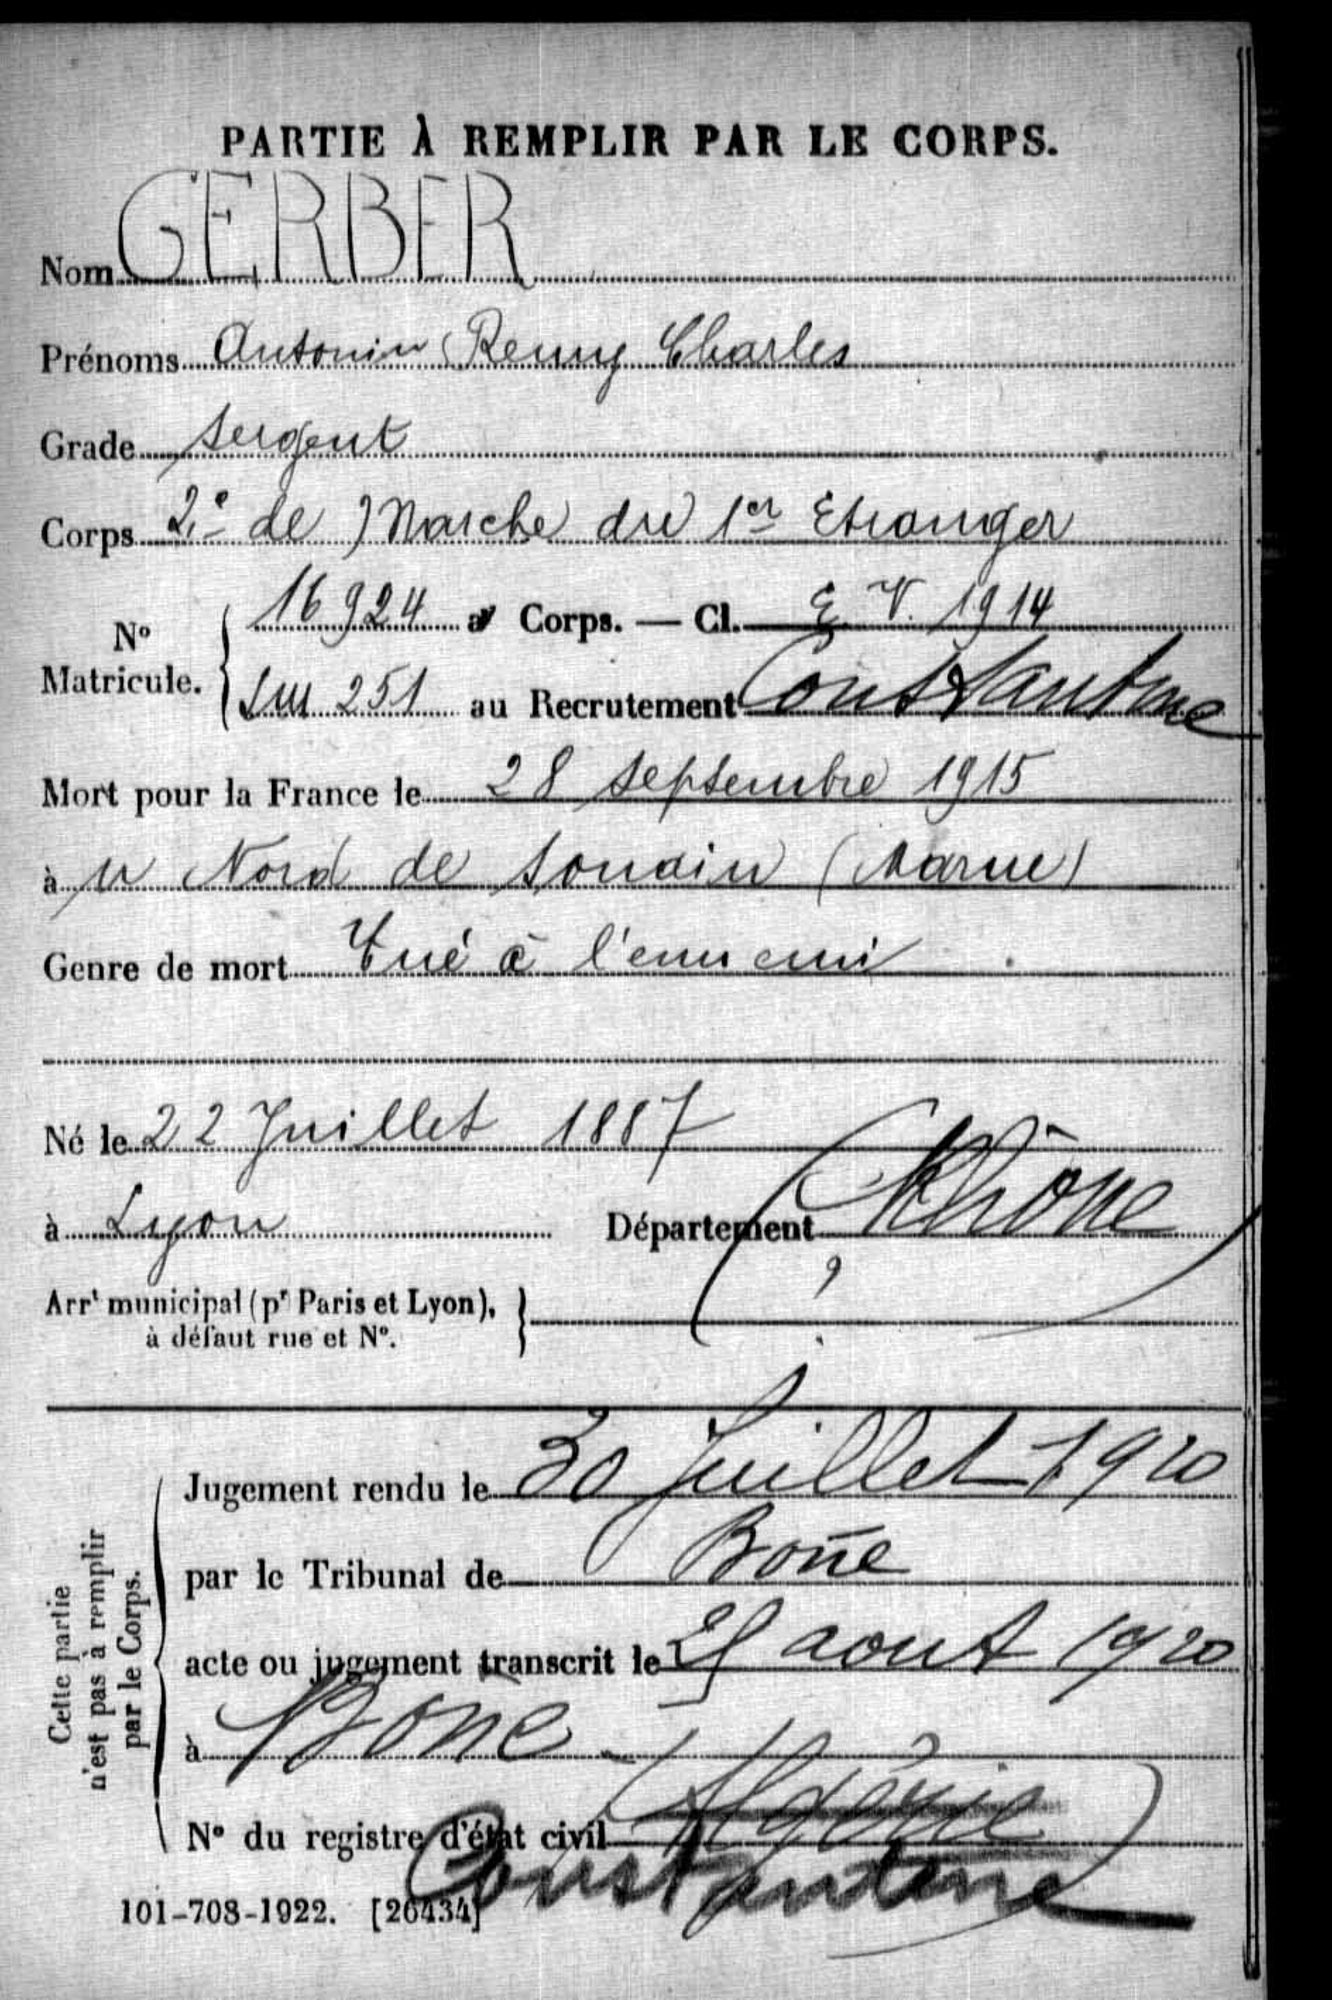 PARTIE À REMPLIR PAR LE CORPS.
Nom GERBER
Prénoms Antonin Remy Charles
Grade Sergent
Corps 2e de Marche du 1er Etranger
N° Matricule. 16924 au Corps. — Cl. E V. 1914
251 au Recrutement Constantine
Mort pour la France le 28 septembre 1915
à u Nord de Souain (Marne)
Genre de mort Tué à l'ennemi
Né le 22 Juillet 1887
à Lyon Département (Rhône)
Arrt municipal (pr Paris et Lyon),
à défaut rue et N°.
?
Cette partie n'est pas à remplir par le Corps.
Jugement rendu le 30 Juillet 1920
par le Tribunal de Bône
acte ou jugement transcrit le 25 aout 1920
à Bône (Algérie)
N° du registre d'état civil
Constantine
101-708-1922. [26434]